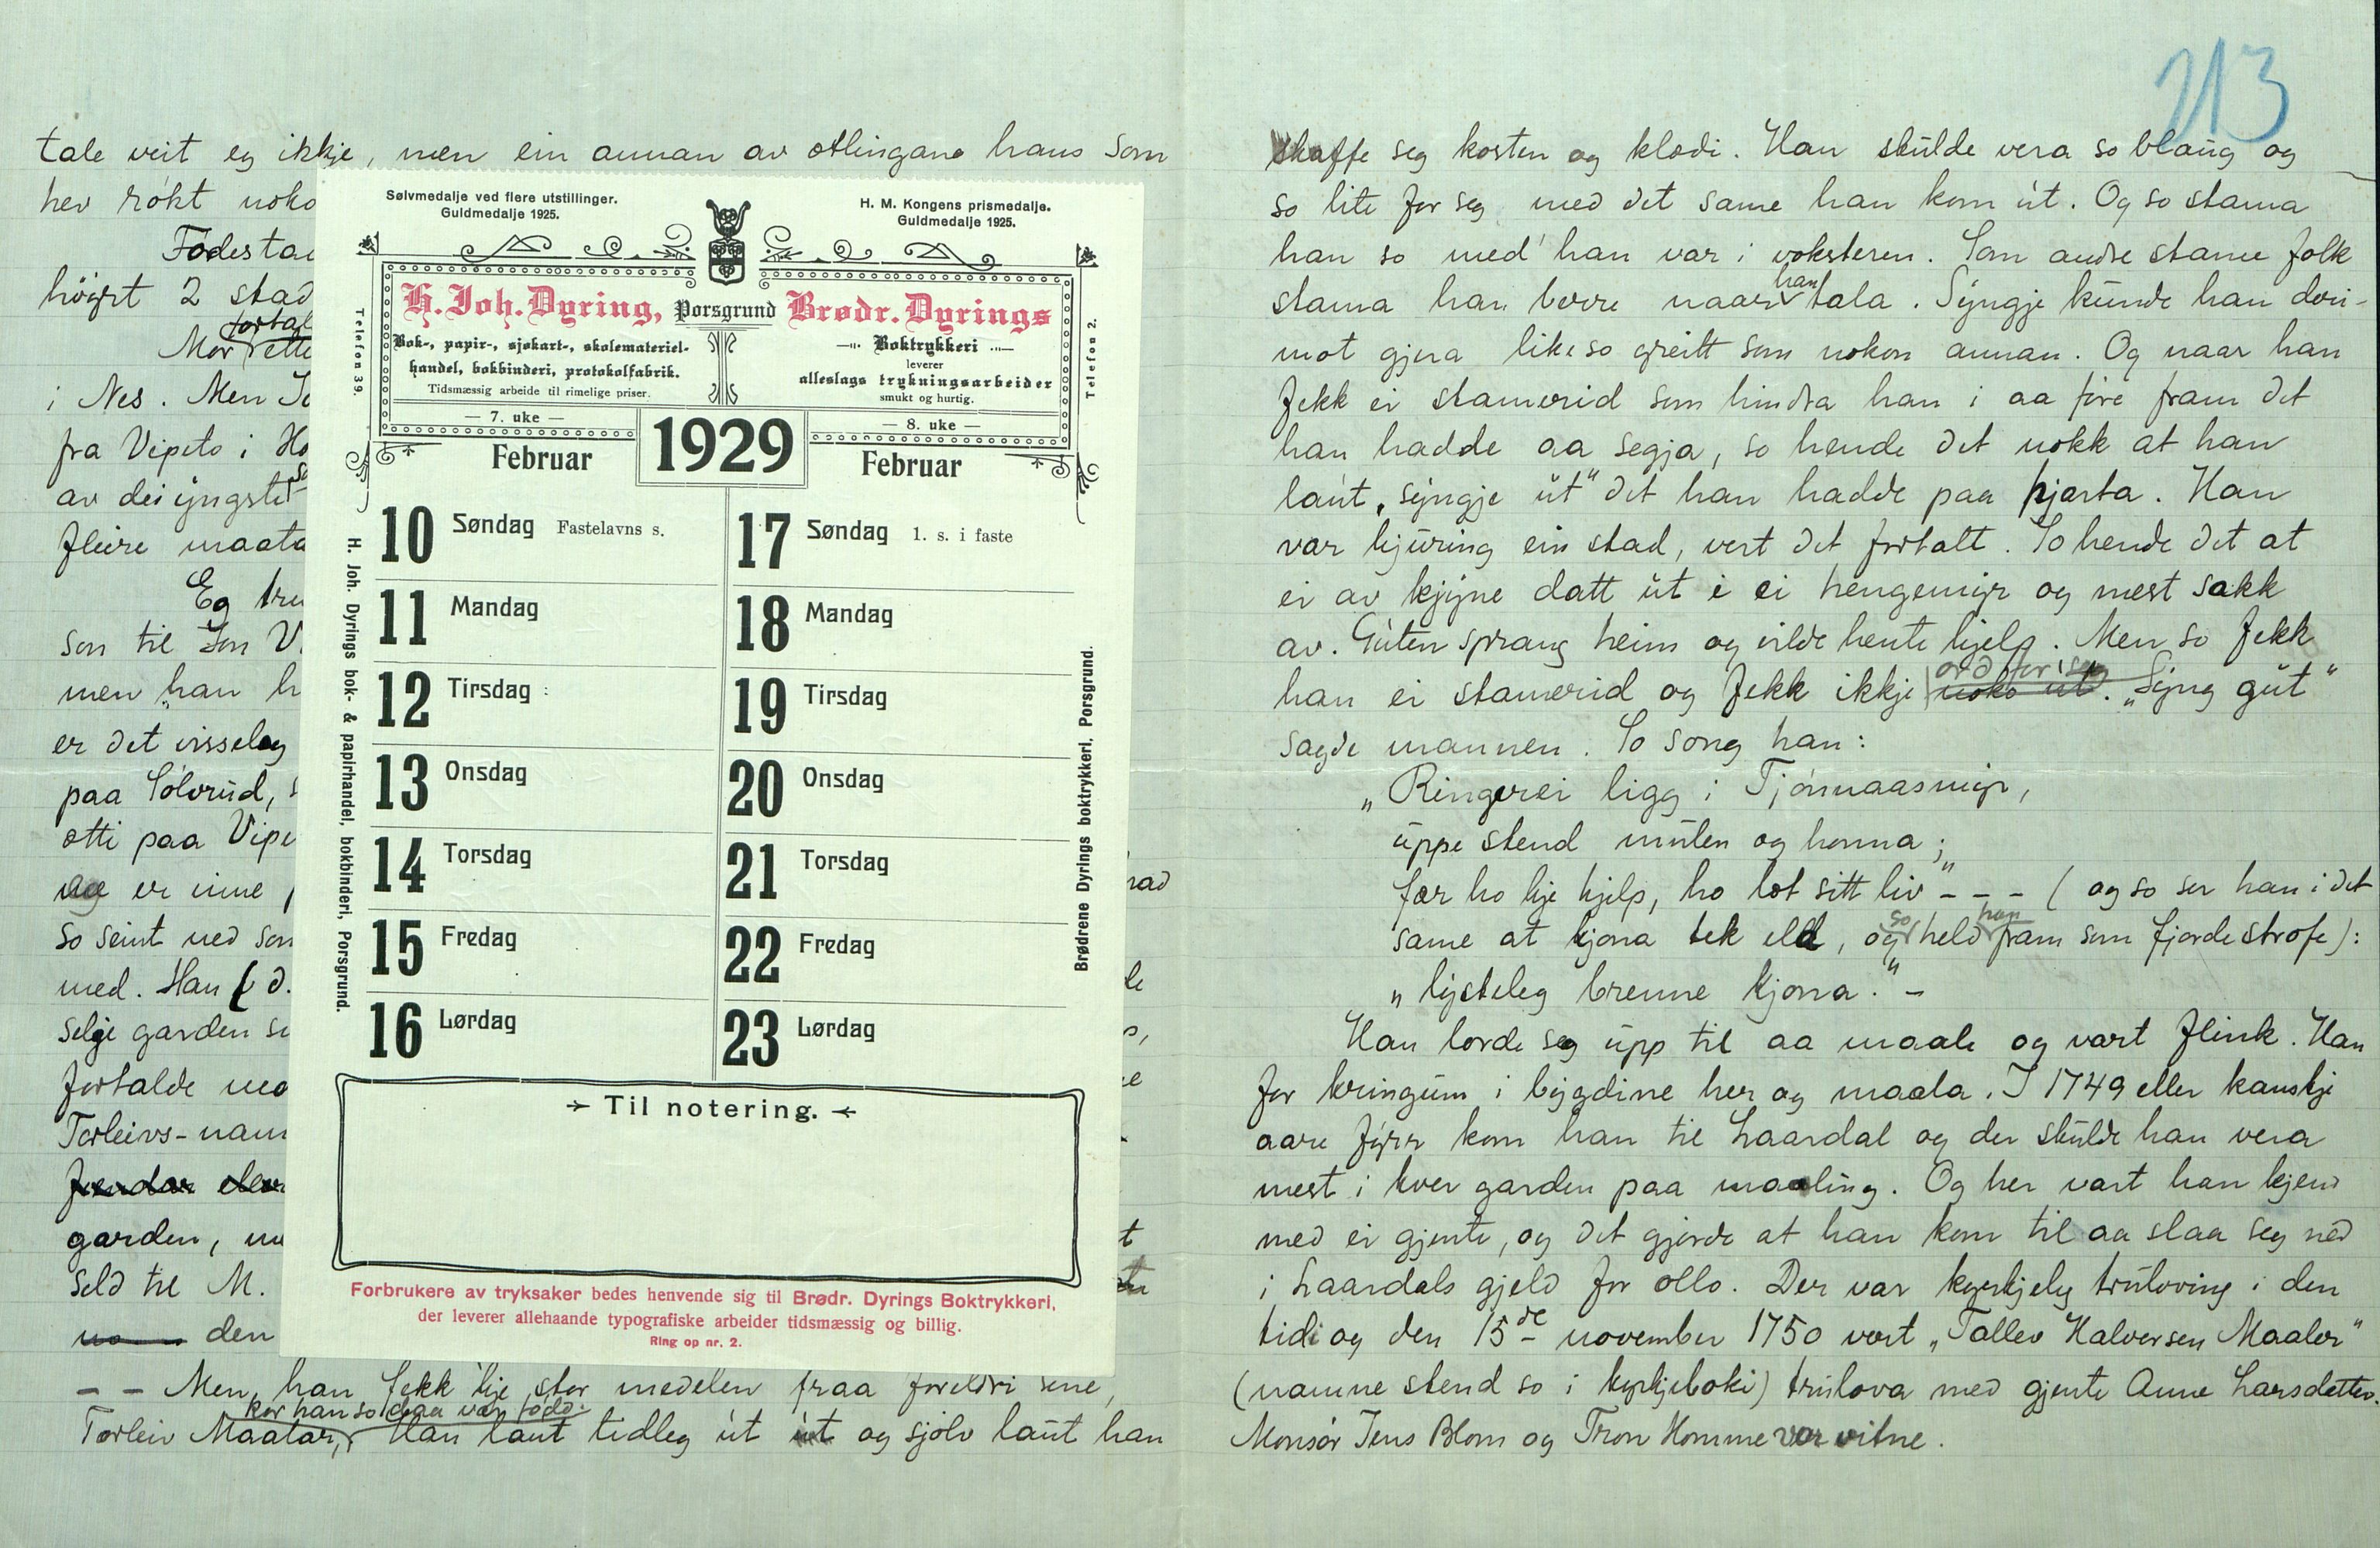 tale veit eg ikkje, men ein annan av ætlingane hans som
hev røkt noko
Fødestad
høyrt 2 stad
fortal
Mor rette
i Nes. Men Jo
fra Vipeto i Ho
av dei yngste
fleire maata
Eg tru
son til Jon V.
men han h
er det visseleg
paa Sølvrud, s
ætti paa Vipe
er inne
so seint ned som
med. Han d.
selje garden si
fortalde mo
Torleivs-nam
frendar eler
garden, m
seld til M.
den
– – Men han fekk 'kje stor medelen fraa foreldri sine,
kor han so daa var fødd.
Torleiv Maalar, Han laut tidleg út út og sjølv laut han
rad
le
t
Sølvmedalje ved flere utstillinger.
Guldmedalje 1925.
H. M. Kongens prismedalje.
Guldmedalje 1925.
H. Joh. Dyring, Porsgrund Brødr. Dyrings
Bok-, papir-, sjøkart-, skolemateriel-
handel, bokbinderi, protokolfabrik.
Tidsmæssig arbeide til rimelige priser.
Boktrykkeri
leverer
alleslags trykningsarbeider
smukt og hurtig.
Telefon 39.
Telefon 2.
— 7. uke —
1929
— 8. uke —
Februar
Februar
10 Søndag Fastelavns s.
11 Mandag
12 Tirsdag
13 Onsdag
14 Torsdag
15 Fredag
16 Lørdag
17 Søndag 1. s. i faste
18 Mandag
19 Tirsdag
20 Onsdag
21 Torsdag
22 Fredag
23 Lørdag
H. Joh. Dyrings bok- & papirhandel, bokbinderi, Porsgrund.
Brødrene Dyrings boktrykkeri, Porsgrund.
Til notering.
Forbrukere av tryksaker bedes henvende sig til Brødr. Dyrings Boktrykkeri,
der leverer allehaande typografiske arbeider tidsmæssig og billig.
Ring op nr. 2.
213
skaffe seg kosten og klædi. Han skulde vera so blaug og
so lite for seg med det same han kom út. Og so stama
han so med han var i voksteren. Som andre stame folk
stama han berre naar han tala. Syngje kunde han deri-
mot gjera like so greitt som nokon annan. Og naar han
fekk ei stamerid som hindra han i aa føre fram det
han hadde aa segja, so hende det nokk at han
laut „syngje út“ det han hadde paa hjarta. Han
var hjuring ein stad, vert det fortalt. So hende det at
ei av kjyne datt út i ei hengemyr og mest sakk
av. Guten sprang heim og vilde hente hjelp. Men so fekk
ord for seg
han ei stamerid og fekk ikkje noko út. „Syng gut“
sagde mannen. So song han:
„Ringerei ligg i Tjønnaasmyr,
uppe stend mulen og honna;
fær ho kje hjelp, ho læt sitt liv“ – – – ( og so ser han i det
same at kjona tek eld, og so held han fram som fjorde strofe):
„lysteleg brenne kjona.“ –
Han lærde seg upp til aa maale og vart flink. Han
for kringum i bygdine her og maala. I 1749 eller kanskje
aare fyrr kom han til Laardal og der skulde han vera
mest i kver garden paa maaling. Og her vart han kjend
med ei gjente, og det gjorde at han kom til aa slaa seg ned
i Laardals gjeld for ollo. Der var kyrkjeleg truloving i den
tidi og den 15de november 1750 vart „Tallev Halversen Maaler“
(namne stend so i kyrkjeboki) trulova med gjente Anne Larsdotter.
Monsør Jens Blom og Tron Homme var vitne.